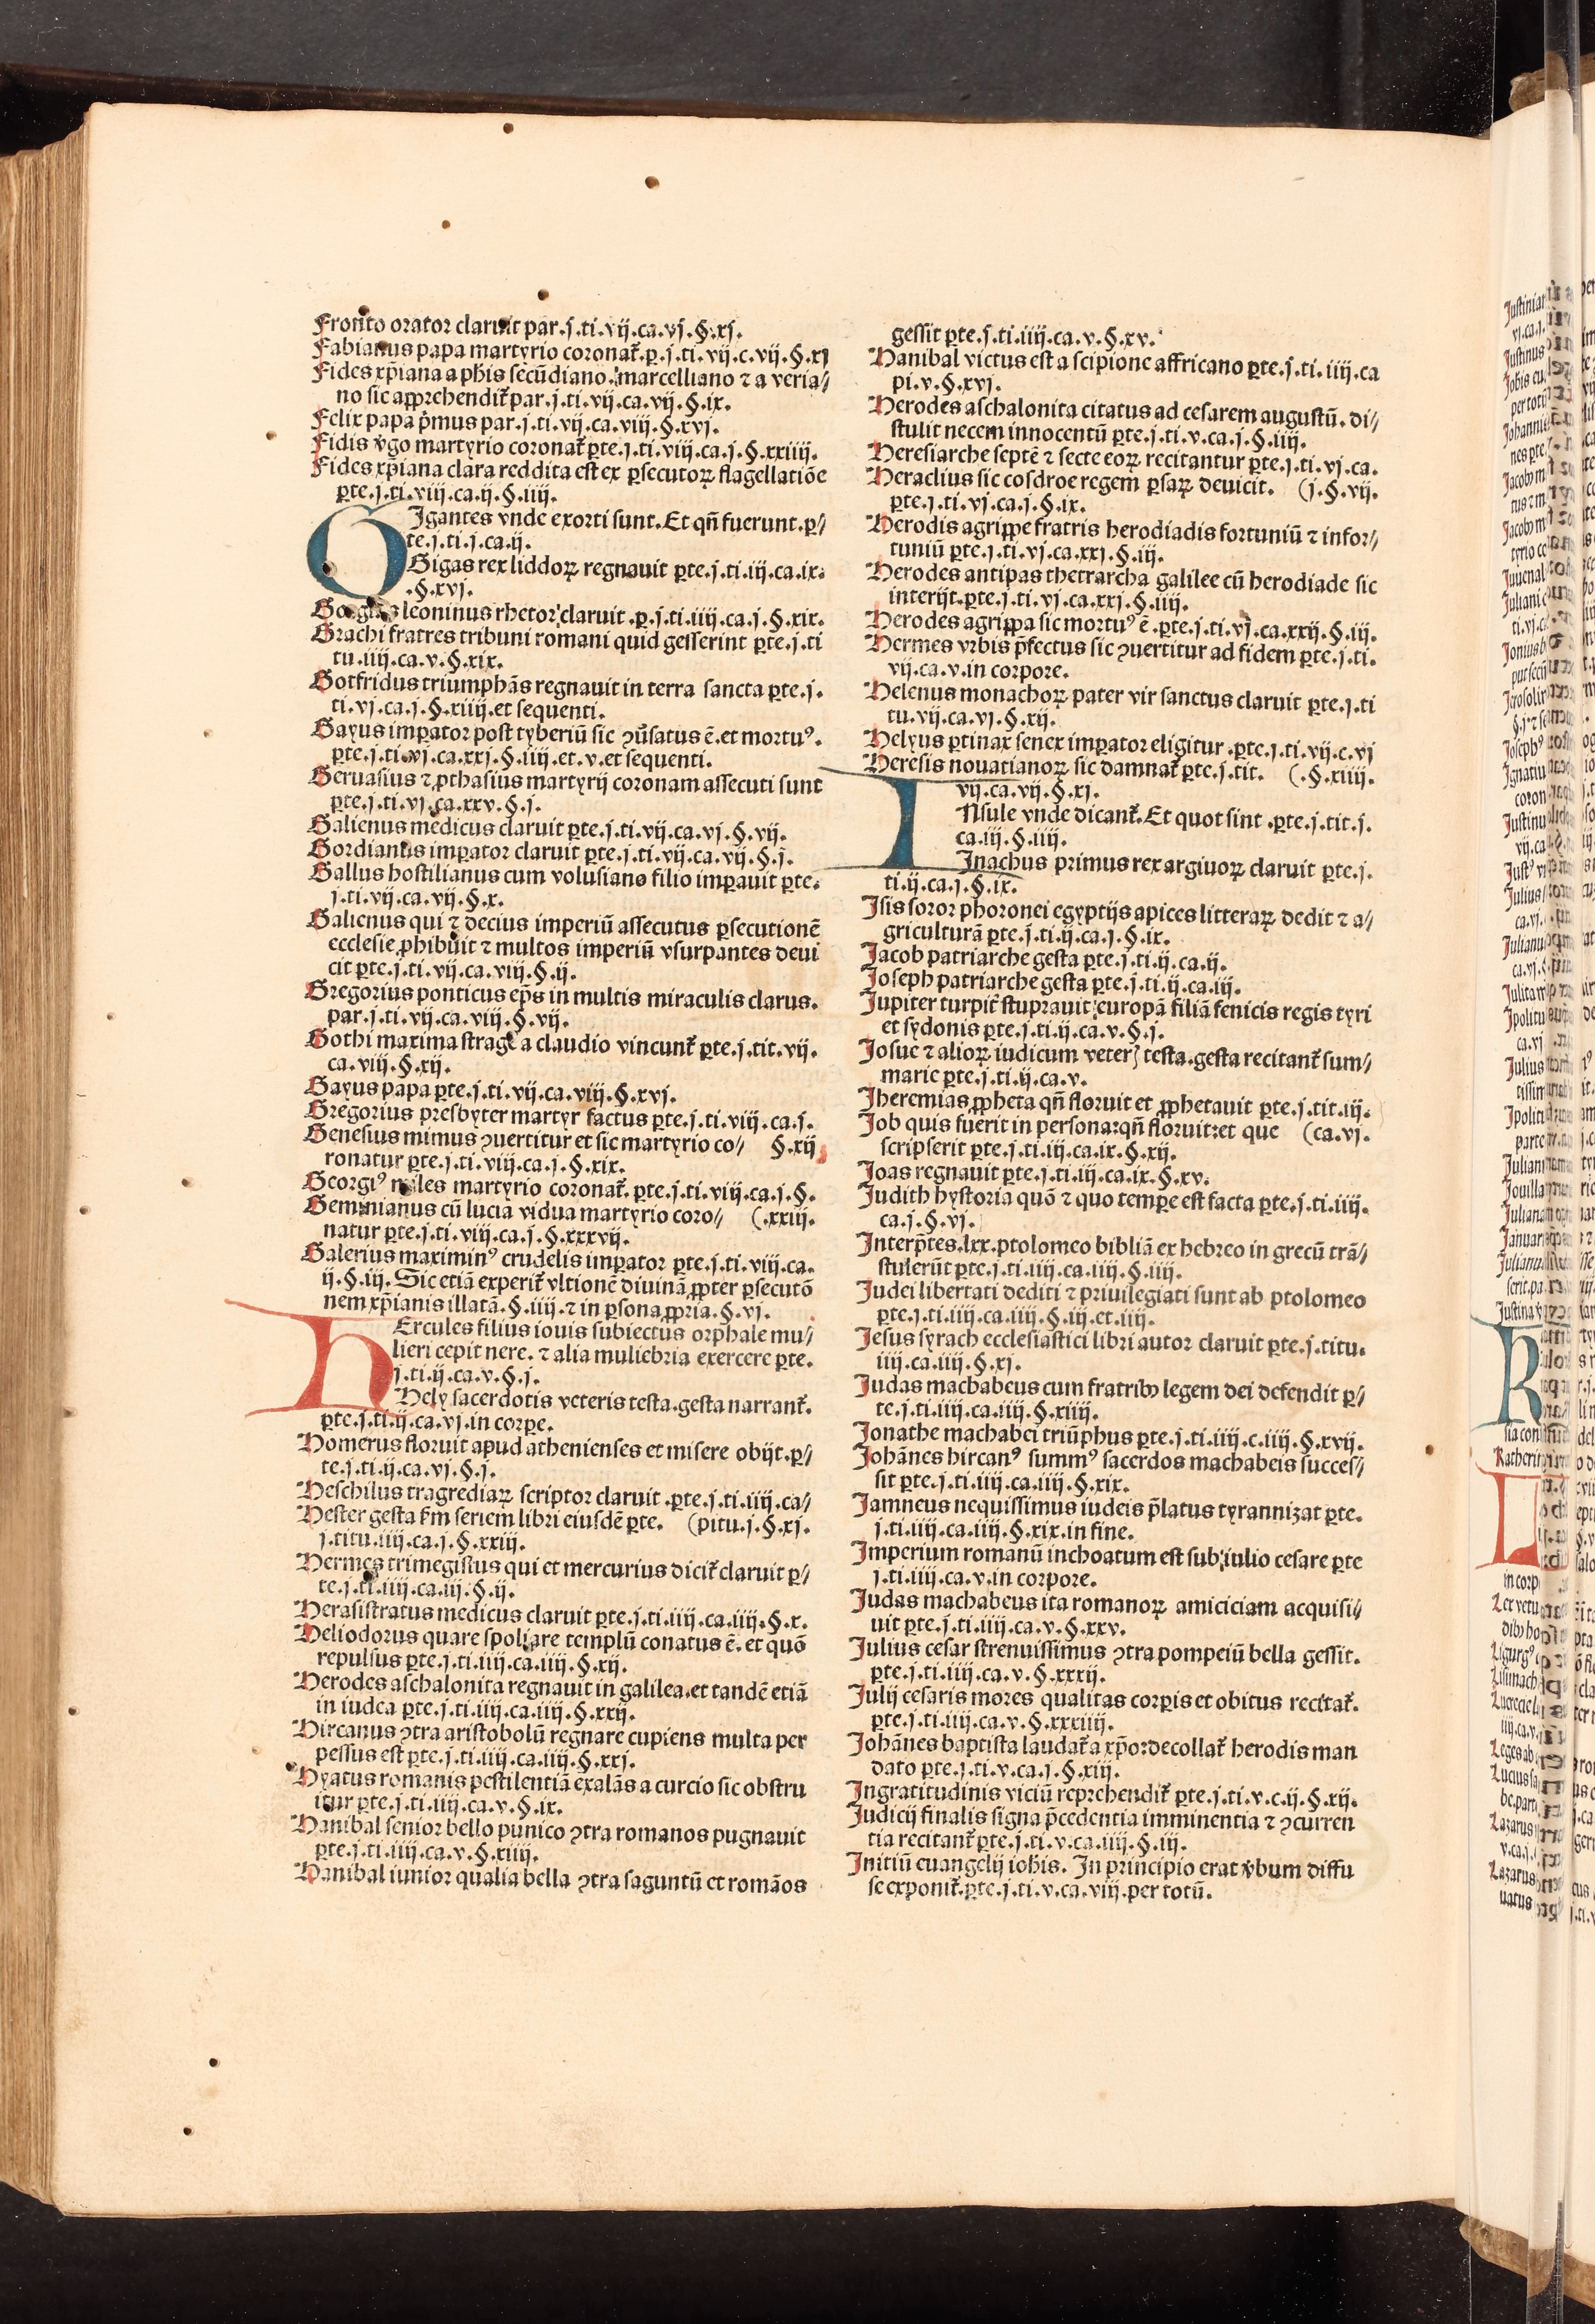 Fronto orator claruit par.j.ti.vij.ca.vj.§.xj.
Fabianus papa martyrio coronat᷑.ꝑ.j.ti.vij.c.vij.§.xj
Fides xp̄iana a ph̄is secūdiano.marcelliano ⁊ a veria//
no sic apprehendit᷑ par.j.ti.vij.ca.vij.§.ix.
Felix papa pͥmus par.j.ti.vij.ca.viij.§.xvj.
Fidis v̓go martyrio coronat᷑ ꝑte.j.ti.viij.ca.j.§.xxiiij.
Fides xp̄iana clara reddita est ex ꝑsecutoꝝ flagellatiōe
ꝑte.j.ti.viij.ca.ij.§.iiij.
GIgantes vnde exorti sunt.Et qn̄ fuerunt.ꝑ//
te.j.ti.j.ca.ij.
Gigas rex liddoꝝ regnauit ꝑte.j.ti.iij.ca.ix.
.§.xvj.
Gorgias leoninus rhetor claruit.ꝑ.j.ti.iiij.ca.j.§.xix.
Grachi fratres tribuni romani quid gesserint ꝑte.j.ti
tu.iiij.ca.v.§.xix.
Gotfridus triumphās regnauit in terra sancta ꝑte.j.
ti.vj.ca.j.§.xiiij.et sequenti.
Gayus imꝑator post tyberiū sic ꝯu̓satus ē.et mortuꝰ.
ꝑte.j.ti.vj.ca.xxj.§.iiij.et.v.et sequenti.
Geruasius ⁊ ꝓthasius martyrij coronam assecuti sunt
ꝑte.j.ti.vj.ca.xxv.§.j.
Galienus medicus claruit ꝑte.j.ti.vij.ca.vj.§.vij.
Gordianus imꝑator claruit ꝑte.j.ti.vij.ca.vij.§.j.
Gallus hostilianus cum volusiano filio imꝑauit ꝑte.
j.ti.vij.ca.vij.§.x.
Galienus qui ⁊ decius imperiū assecutus ꝑsecutionē
ecclesie ꝓhibuit ⁊ multos imperiū vsurpantes deui
cit ꝑte.j.ti.vij.ca.viij.§.ij.
Gregorius ponticus ep̄s in multis miraculis clarus.
par.j.ti.vij.ca.viij.§.vij.
Gothi maxima strage a claudio vincunt᷑ ꝑte.j.tit.vij.
ca.viij.§.xij.
Gayus papa ꝑte.j.ti.vij.ca.viij.§.xvj.
Gregorius presbyter martyr factus ꝑte.j.ti.viij.ca.j.
Genesius mimus ꝯuertitur et sic martyrio co// §.xij
ronatur ꝑte.j.ti.viij.ca.j.§.xix.
Georgiꝰ miles martyrio coronat᷑.ꝑte.j.ti.viij.ca.j.§.
Geminianus cū lucia vidua martyrio coro// (.xxiij.
natur ꝑte.j.ti.viij.ca.j.§.xxxvij.
Galerius maximinꝰ crudelis imꝑator ꝑte.j.ti.viij.ca.
ij.§.iij.Sic etiā experit᷑ vltionē diuinā ꝓpter ꝑsecutō
nem xp̄ianis illatā.§.iiij.⁊ in ꝑsona ꝓpria.§.vj.
HErcules filius iouis subiectus orphale mu//
lieri cepit nere.⁊ alia muliebria exercere ꝑte.
j.ti.ij.ca.v.§.j.
Hely sacerdotis veteris testa.gesta narrant᷑.
ꝑte.j.ti.ij.ca.vj.in corꝑe.
Homerus floruit apud athenienses et misere obijt.ꝑ//
te.j.ti.ij.ca.vj.§.j.
Heschilus tragrediaꝝ scriptor claruit.ꝑte.j.ti.iiij.ca//
Hester gesta ẜm seriem libri eiusdē ꝑte. (pitu.j.§.xj.
j.titu.iiij.ca.j.§.xxiij.
Hermes trimegistus qui et mercurius dicit᷑ claruit ꝑ//
te.j.ti.iiij.ca.iij.§.ij.
Herasistratus medicus claruit ꝑte.j.ti.iiij.ca.iiij.§.x.
Heliodorus quare spoliare templū conatus ē.et quō
repulsus ꝑte.j.ti.iiij.ca.iiij.§.xij.
Herodes aschalonita regnauit in galilea.et tandē etiā
in iudea ꝑte.j.ti.iiij.ca.iiij.§.xxij.
Hircanus ꝯtra aristobolū regnare cupiens multa per
pessus est ꝑte.j.ti.iiij.ca.iiij.§.xxj.
Hyatus romanis pestilentiā exalās a curcio sic obstru
itur ꝑte.j.ti.iiij.ca.v.§.ix.
Hanibal senior bello punico ꝯtra romanos pugnauit
ꝑte.j.ti.iiij.ca.v.§.xiiij.
Hanibal iunior qualia bella ꝯtra saguntū et romāos
gessit ꝑte.j.ti.iiij.ca.v.§.xv.
Hanibal victus est a scipione affricano ꝑte.j.ti.iiij.ca
pi.v.§.xvj.
Herodes aschalonita citatus ad cesarem augustū.di//
stulit necem innocentū ꝑte.j.ti.v.ca.j.§.iiij.
Heresiarche septē ⁊ secte eoꝝ recitantur ꝑte.j.ti.vj.ca.
Heraclius sic cosdroe regem ꝑsaꝝ deuicit. (j.§.vij.
ꝑte.j.ti.vj.ca.j.§.ix.
Herodis agrippe fratris herodiadis fortuniū ⁊ infor//
tuniū ꝑte.j.ti.vj.ca.xxj.§.iij.
Herodes antipas thetrarcha galilee cū herodiade sic
interijt.ꝑte.j.ti.vj.ca.xxj.§.iiij.
Herodes agrippa sic mortuꝰ ē.ꝑte.j.ti.vj.ca.xxij.§.iij.
Hermes vrbis p̄fectus sic ꝯuertitur ad fidem ꝑte.j.ti.
vij.ca.v.in corpore.
Helenus monachoꝝ pater vir sanctus claruit ꝑte.j.ti
tu.vij.ca.vj.§.xij.
Helyus ꝑtinax senex imꝑator eligitur.ꝑte.j.ti.vij.c.vj
Heresis nouatianoꝝ sic damnat᷑ ꝑte.j.tit. (.§.xiiij.
vij.ca.vij.§.xj.
INsule vnde dicant᷑.Et quot sint.ꝑte.j.tit.j.
ca.iij.§.iiij.
Inachus primus rex argiuoꝝ claruit ꝑte.j.
ti.ij.ca.j.§.ix.
Isis soror phoronei egyptijs apices litteraꝝ dedit ⁊ a//
griculturā ꝑte.j.ti.ij.ca.j.§.ix.
Jacob patriarche gesta ꝑte.j.ti.ij.ca.ij.
Joseph patriarche gesta ꝑte.j.ti.ij.ca.iij.
Jupiter turpit᷑ stuprauit europā filiā fenicis regis tyri
et sydonis ꝑte.j.ti.ij.ca.v.§.j.
Josue ⁊ alioꝝ iudicum veterꝭ testa.gesta recitant᷑ sum//
marie ꝑte.j.ti.ij.ca.v.
Jheremias ꝓpheta qn̄ floruit et ꝓphetauit ꝑte.j.tit.iij.
Job quis fuerit in persona:qn̄ floruit:et que (ca.vj.
scripserit ꝑte.j.ti.iij.ca.ix.§.xij.
Joas regnauit ꝑte.j.ti.iij.ca.ix.§.xv.
Judith hystoria quō ⁊ quo tempe est facta ꝑte.j.ti.iiij.
ca.j.§.vj.
Interp̄tes.lxx.ptolomeo bibliā ex hebreo in grecū trā//
stulerūt ꝑte.j.ti.iiij.ca.iiij.§.iiij.
Judei libertati dediti ⁊ priuilegiati sunt ab ptolomeo
ꝑte.j.ti.iiij.ca.iiij.§.iij.et.iiij.
Jesus syrach ecclesiastici libri autor claruit ꝑte.j.titu.
iiij.ca.iiij.§.xj.
Judas machabeus cum fratribꝫ legem dei defendit ꝑ//
te.j.ti.iiij.ca.iiij.§.xiiij.
Jonathe machabei triūphus ꝑte.j.ti.iiij.c.iiij.§.xvij.
Johānes hircanꝰ summꝰ sacerdos machabeis succes//
sit ꝑte.j.ti.iiij.ca.iiij.§.xix.
Jamneus nequissimus iudeis p̄latus tyrannizat ꝑte.
j.ti.iiij.ca.iiij.§.xix.in fine.
Imperium romanū inchoatum est sub iulio cesare ꝑte
j.ti.iiij.ca.v.in corpore.
Judas machabeus ita romanoꝝ amiciciam acquisi//
uit ꝑte.j.ti.iiij.ca.v.§.xxv.
Julius cesar strenuissimus ꝯtra pompeiū bella gessit.
ꝑte.j.ti.iiij.ca.v.§.xxxij.
Julij cesaris mores qualitas corꝑis et obitus recitat᷑.
ꝑte.j.ti.iiij.ca.v.§.xxxiiij.
Johānes baptista laudat᷑ a xp̄o:decollat᷑ herodis man
dato ꝑte.j.ti.v.ca.j.§.xiij.
Ingratitudinis viciū reprehendit᷑ ꝑte.j.ti.v.c.ij.§.xij.
Judicij finalis signa p̄cedentia imminentia ⁊ ꝯcurren
tia recitant᷑ ꝑte.j.ti.v.ca.iiij.§.iij.
Initiū euangelij ioh̄is. In principio erat v̓bum diffu
se exponit᷑.ꝑte.j.ti.v.ca.viij.per totū.